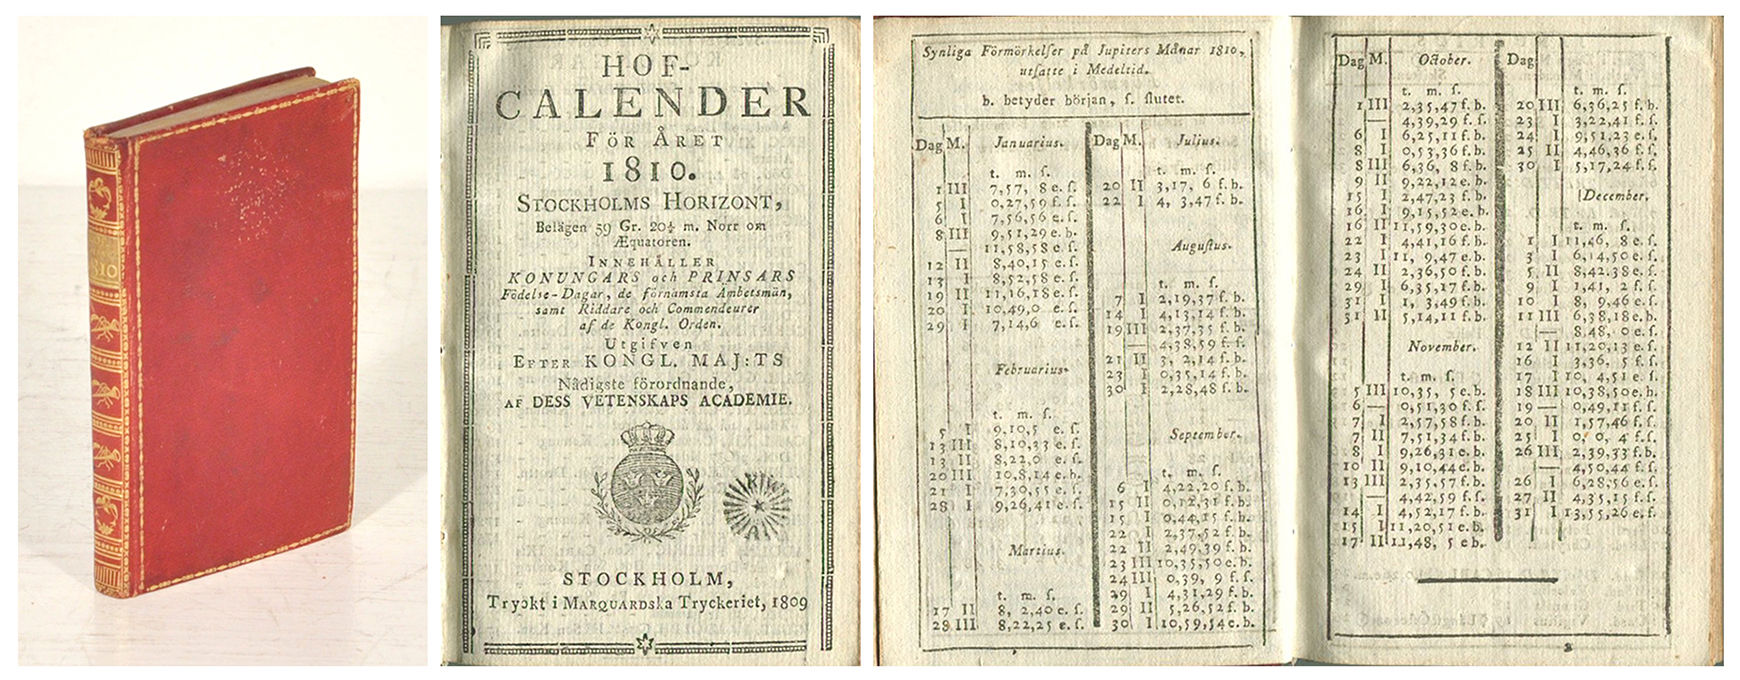 1810
HOF-
CALENDER
FÖR ÅRET
1810.
STOCKHOLMS HORIZONT,
Belägen 59 Gr. 20½ m. Norr om
Æquatoren.
INNEHÅLLER
KONUNGARS och PRINSARS
Födelse-Dagar, de förnämsta Ämbetsmän,
samt Riddare och Commendeurer
af de Kongl. Orden.
Utgifven
EFTER KONGL. MAJ:TS
Nådigste förordnande,
AF DESS VETENSKAPS ACADEMIE.
STOCKHOLM,
Tryckt i MARQUARDSka Tryckeriet, 1809
Synliga Förmörkelser på Jupiters Månar 1810,
utsatte i Medeltid.
b. betyder början, s. slutet.
Dag M. Januarius.
t. m. s.
1 III 7,57, 8 e. s.
5 I 0,27,59 f. s.
6 I 7,56,56 e. s.
8 III 9,51,29 e. b.
— 11,58,58 e. s.
12 II 8,40,15 e. s.
13 I 8,52,58 e. s.
19 II 11,16,18 e. s.
20 I 10,49,0 e. s.
29 I 7,14,6 e. s.
Februarius.
t. m. s.
5 I 9,10,5 e. s.
13 III 8,10,33 e. s.
13 II 8,22,0 e. s.
20 III 10,8,14 e. b.
21 I 7,30,55 e. s.
28 I 9,26,41 e. s.
Martius.
t. m. s.
17 II 8, 2,40 e. s.
28 III 8,22,25 e. s.
Dag M. Julius.
t. m. s.
20 II 3,17, 6 f. b.
22 I 4, 3,47 f. b.
Augustus.
t. m. s.
7 I 2,19,37 f. b.
14 I 4,13,14 f. b.
19 III 2,37,35 f. b.
— 4,38,59 f. s.
21 II 3, 2,14 f. b.
23 I 0,35,14 f. b.
30 I 2,28,48 f. b.
September.
t. m. s.
6 I 4,22,20 f. b.
15 II 0,12,31 f. b.
15 I 0,44,15 f. b.
22 I 2,37,52 f. b.
22 II 2,47,39 f. b.
23 III 10,35,50 e. b.
24 III 0,39, 9 f. s.
29 I 4,31,29 f. b.
29 II 5,26,52 f. b.
30 I 10,59,54 e. b.
Dag M. October.
t. m. s.
1 III 2,35,47 f. b.
— 4,39,29 f. s.
6 I 6,25,11 f. b.
8 I 0,53,36 f. b.
8 III 6,36, 8 f. b.
9 II 9,22,12 e. b.
15 I 2,47,23 f. b.
16 I 9,15,52 e. b.
16 II 11,59,30 e. b.
22 I 4,41,16 f. b.
23 I 11, 9,47 e. b.
24 II 2,36,50 f. b.
29 I 6,35,17 f. b.
31 I 1, 3,49 f. b.
31 II 5,14,11 f. b.
November.
t. m. s.
5 III 10,35, 5 e. b.
6 — 0,51,30 f. s.
7 I 2,57,58 f. b.
7 II 7,51,34 f. b.
8 I 9,26,31 e. b.
10 II 9,10,44 e. b.
13 III 2,35,57 f. b.
— 4,42,59 f. s.
14 I 4,52,17 f. b.
15 I 11,20,51 e. b.
17 II 11,48, 5 e b.
Dag
t. m. s.
20 III 6,36,25 f. b.
23 I 3,22,41 f. s.
24 I 9,51,23 e. s.
25 II 4,46,36 f. s.
30 I 5,17,24 f. s.
December.
t. m. s.
1 I 11,46, 8 e. s.
3 I 6,14,50 e. s.
5 II 8,42,38 e. s.
9 I 1,41, 2 f. s.
10 I 8, 9,46 e. s.
11 III 6,38,18 e. b.
— 8,48, 0 e. s.
12 II 11,20,13 e. s.
16 I 3,36, 5 f. s.
17 I 10, 4,51 e. s.
18 III 10,38,50 e. b.
19 — 0,49,11 f. s.
20 II 1,57,46 f. s.
25 I 0, 0, 4 f. s.
26 III 2,39,33 f. b.
— 4,50,44 f. s.
26 I 6,28,56 e. s.
27 II 4,35,15 f. s.
31 I 13,55,26 e. s.